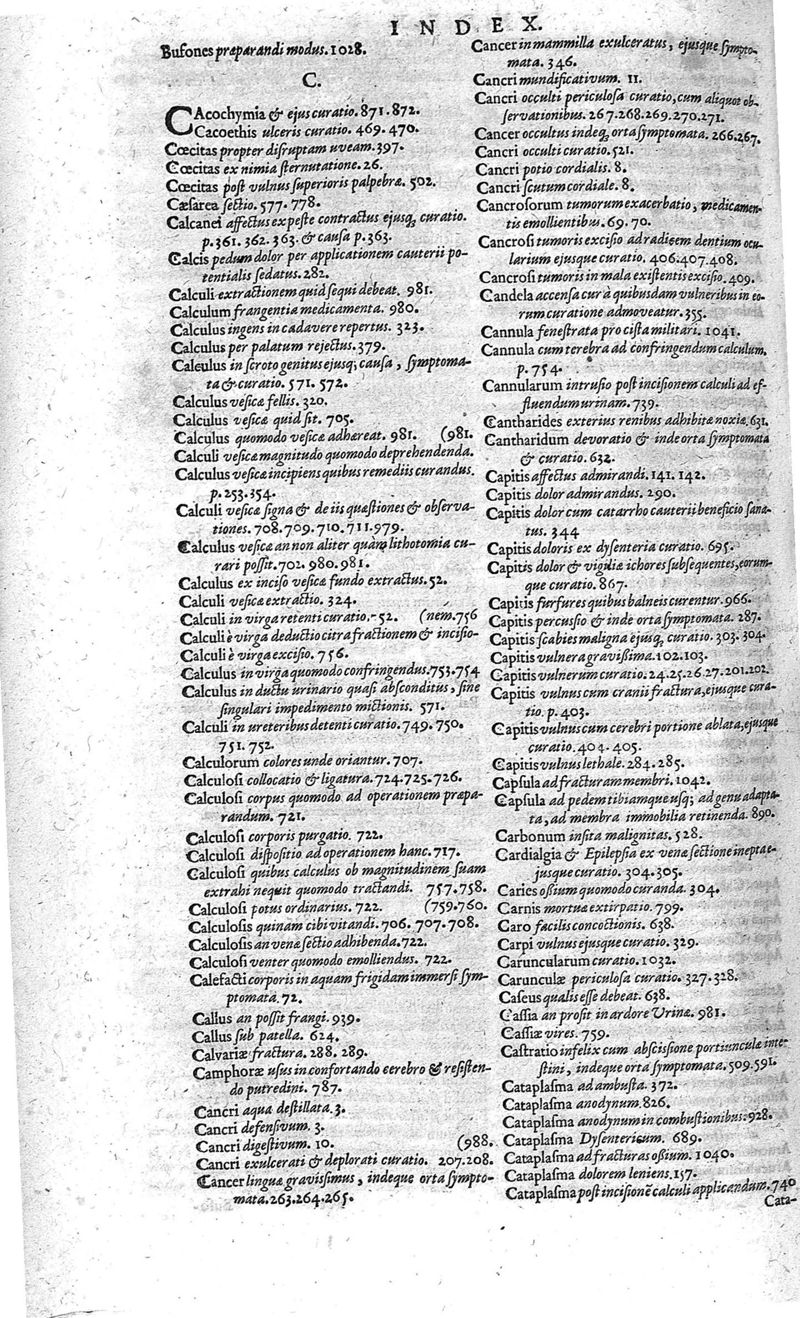 INDEX.
Bufones præparandi modus. 1028.
C.
CAcochymia & ejus curatio. 871. 872.
Cacoethis ulceris curatio. 469. 470.
Cœcitas propter disruptam uveam. 397.
Cœcitas ex nimia sternutatione. 26.
Cœcitas post vulnus superioris palpebræ. 502.
Cæsarea sectio. 577. 778.
Calcanei affectus ex peste contractus ejusq; curatio.
p. 361. 362. 363. & causa p. 363.
Calcis pedum dolor per applicationem cauterii po-
tentialis sedatus. 282.
Calculi extractionem quid sequi debeat. 981.
Calculum frangentia medicamenta. 980.
Calculus ingens in cadavere repertus. 323.
Calculus per palatum rejectus. 379.
Calculus in scroto genitus ejusq; causa, symptoma-
ta & curatio. 571. 572.
Calculus vesicæ fellis. 320.
Calculus vesicæ quid sit. 705.
Calculus quomodo vesicæ adhæreat. 981. (981.
Calculi vesicæ magnitudo quomodo deprehendenda.
Calculus vesicæ incipiens quibus remediis curandus.
p. 253. 354.
Calculi vesicæ signa & de iis quæstiones & observa-
tiones. 708. 709. 710. 711. 979.
Calculus vesicæ an non aliter quàm lithotomia cu-
rari possit. 702. 980. 981.
Calculus ex inciso vesicæ fundo extractus. 52.
Calculi vesicæ extractio. 324.
Calculi in virga retenti curatio. 52. (nem. 756
Calculi è virga deductio citra fractionem & incisio-
Calculi è virga excisio. 756.
Calculus in virga quomodo confringendus. 753. 754
Calculus in ductu urinario quasi absconditus, sine
singulari impedimento mictionis. 571.
Calculi in ureteribus detenti curatio. 749. 750.
751. 752.
Calculorum colores unde oriantur. 707.
Calculosi collocatio & ligatura. 724. 725. 726.
Calculosi corpus quomodo ad operationem præpa-
randum. 721.
Calculosi corporis purgatio. 722.
Calculosi dispositio ad operationem hanc. 717.
Calculosi quibus calculus ob magnitudinem suam
extrahi nequit quomodo tractandi. 757. 758.
Calculosi potus ordinarius. 722. (759. 760.
Calculosis quinam cibi vitandi. 706. 707. 708.
Calculosis an venæ sectio adhibenda. 722.
Calculosi venter quomodo emolliendus. 722.
Calefacti corporis in aquam frigidam immersi sym-
ptomata. 72.
Callus an possit frangi. 939.
Callus sub patella. 624.
Calvariæ fractura. 288. 289.
Camphoræ usus in confortando cerebro & resisten-
do putredini. 787.
Cancri aqua destillata. 3.
Cancri defensivum. 3.
Cancri digestivum. 10. (988.
Cancri exulcerati & deplorati curatio. 207. 208.
Cancer linguæ gravissimus, indeque orta sympto-
mata. 263. 264. 265.
Cancer in mammilla exulceratus, ejusque sympto-
mata. 346.
Cancri mundificativum. 11.
Cancri occulti periculosa curatio, cum aliquot ob-
servationibus. 267. 268. 269. 270. 271.
Cancer occultus indeq; orta symptomata. 266. 267.
Cancri occulti curatio. 521.
Cancri potio cordialis. 8.
Cancri scutum cordiale. 8.
Cancrosorum tumorum exacerbatio, medicamen-
tis emollientibus. 69. 70.
Cancrosi tumoris excisio ad radicem dentium ocu-
larium ejusque curatio. 406. 407. 408.
Cancrosi tumoris in mala existentis excisio. 409.
Candela accensa cur à quibusdam vulneribus in eo-
rum curatione admoveatur. 355.
Cannula fenestrata pro cista militari. 1041.
Cannula cum terebra ad confringendum calculum.
p. 754.
Cannularum intrusio post incisionem calculi ad ef-
fluendum urinam. 739.
Cantharides exterius renibus adhibitæ noxiæ. 631.
Cantharidum devoratio & inde orta symptomata
& curatio. 632.
Capitis affectus admirandi. 141. 142.
Capitis dolor admirandus. 290.
Capitis dolor cum catarrho cauterii beneficio sana-
tus. 344
Capitis doloris ex dysenteria curatio. 695.
Capitis dolor & vigiliæ ichores subsequentes, eorum-
que curatio. 867.
Capitis furfures quibus balneis curentur. 966.
Capitis percussio & inde orta symptomata. 287.
Capitis scabies maligna ejusq; curatio. 303. 304.
Capitis vulnera gravißima. 102. 103.
Capitis vulnerum curatio. 24. 25. 26. 27. 201. 202.
Capitis vulnus cum cranii fractura, ejusque cura-
tio. p. 403.
Capitis vulnus cum cerebri portione ablata, ejusque
curatio. 404. 405.
Capitis vulnus lethale. 284. 285.
Capsula ad fracturam membri. 1042.
Capsula ad pedem tibiamque usq; ad genu adapta-
ta, ad membra immobilia retinenda. 890.
Carbonum insita malignitas. 528.
Cardialgia & Epilepsia ex venæ sectione inepta e-
jusque curatio. 304. 305.
Caries oßium quomodo curanda. 304.
Carnis mortuæ extirpatio. 799.
Caro facilis concoctionis. 638.
Carpi vulnus ejusque curatio. 329.
Caruncularum curatio. 1032.
Carunculæ periculosa curatio. 327. 328.
Caseus qualis esse debeat. 638.
Cassia an prosit in ardore Urinæ. 981.
Cassiæ vires. 759.
Castratio infelix cum abscissione portiunculæ inte-
stini, indeque orta symptomata. 509. 591.
Cataplasma ad ambusta. 372.
Cataplasma anodynum. 826.
Cataplasma anodynum in combustionibus. 928.
Cataplasma Dysentericum. 689.
Cataplasma ad fracturas oßium. 1040.
Cataplasma dolorem leniens. 157.
Cataplasma post incisionẽ calculi applicandum. 740
Cata-